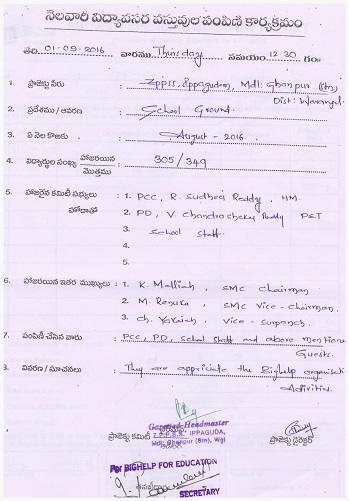 నెలవారీ విద్యావసర వస్తువుల పంపిణి కార్యక్రమం
తేది 01-09-2016 వారము Thursday సమయం 12-30 గం॥
1. ప్రాజెక్టు పేరు : Zppss, Ippagudem, Mdl: Ghanpur (Stn)
Dist: Warangal.
2. ప్రదేశము / ఆవరణ : School Ground.
3. ఏ నెల కొఱకు : August - 2016.
4. విద్యార్థుల సంఖ్య హాజరయిన / మొత్తము : 305/349
5. హాజరైన కమిటీ సభ్యులు : 1. PCC, R. Sudheer Reddy, HM.
హోదాతో 2. PD, V. Chandrashekar Reddy PET
3. School staff.
4.
5.
6. హాజరయిన ఇతర ముఖ్యులు : 1. K. Malliah, SMC Chairman
2. M. Renuka, SMC Vice-chairman.
3. Ch. Yakaiah, Vice-surpanch.
7. పంపిణీ చేసిన వారు : PCC, PD, School Staff and above mentione
Guests.
8. వివరణ / సూచనలు : They are appriciate the Bighelp organisati
Activities.
Gazetted Headmaster
Z.P.S.S. IPPAGUDA,
Mdl: Ghanpur (Stn), Wgl
ప్రాజెక్టు కమిటీ
ప్రాజెక్టు డైరెక్టర్
For BIGHELP FOR EDUCATION
SECRETARY